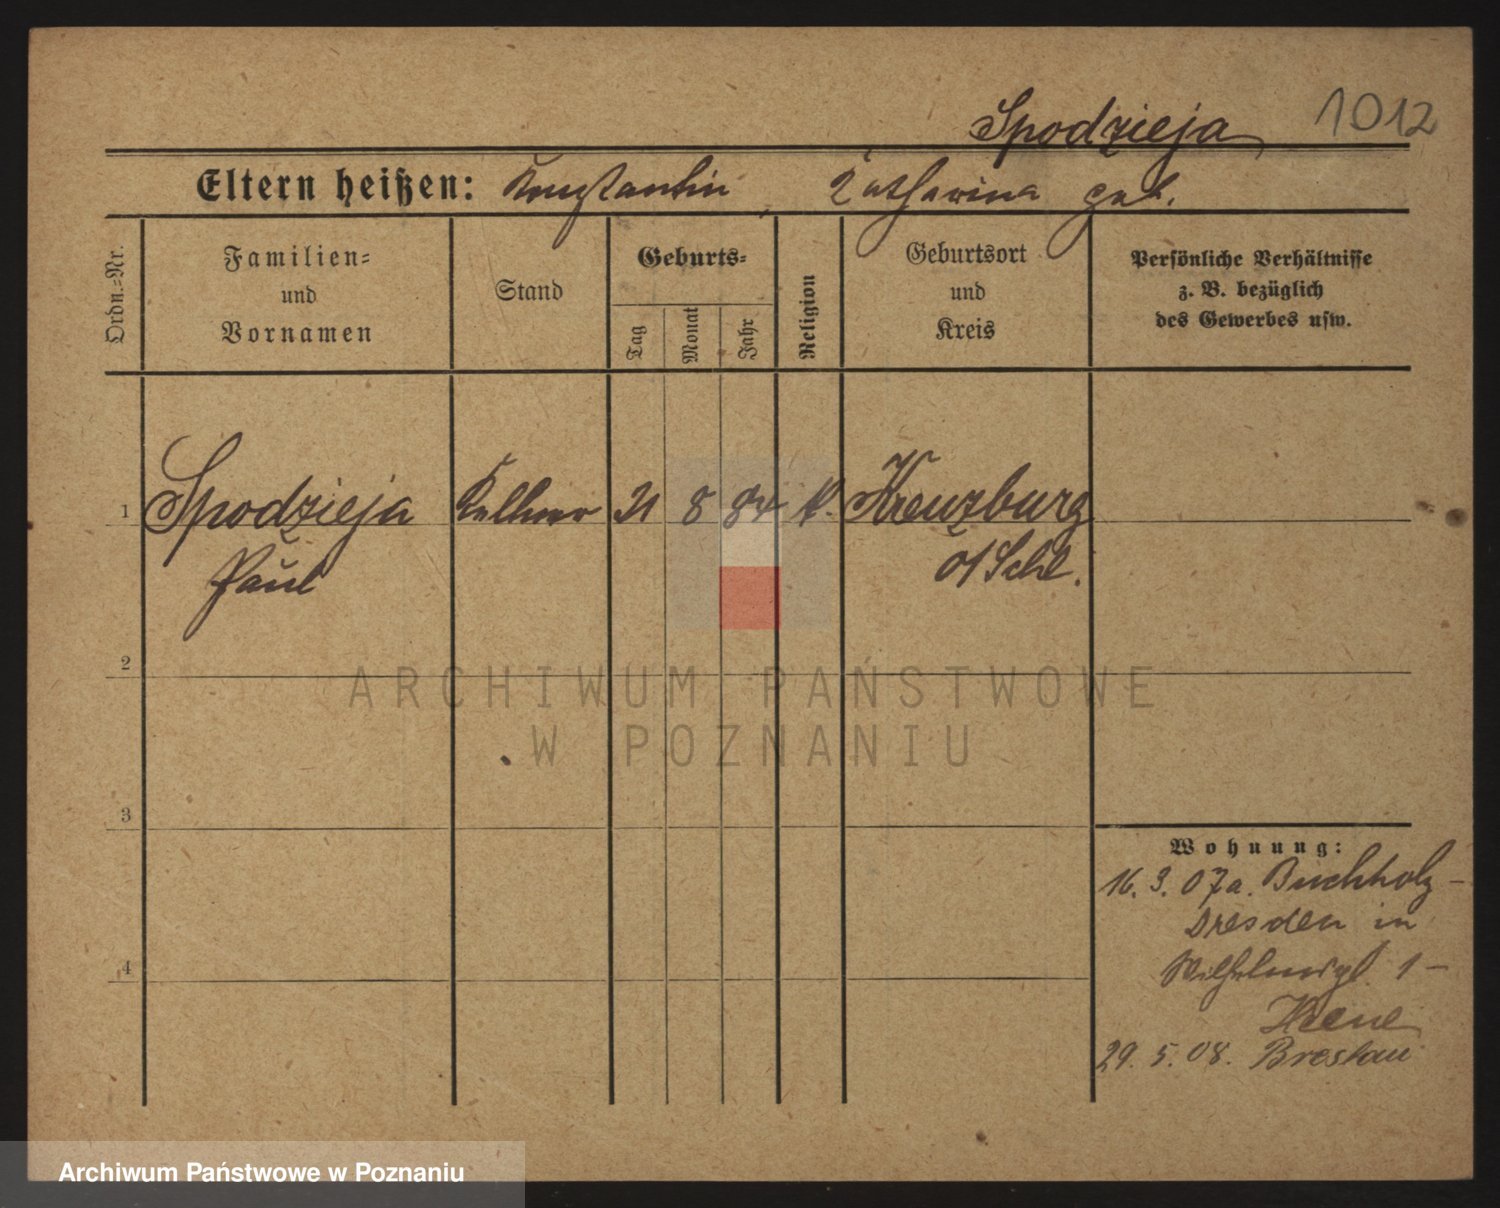 Spodzieja 1012
Eltern heißen: Konstantin, Katharina geb.
Ordn.=Nr.
Familien=
und
Vornamen
Stand
Geburts=
Tag
Monat
Jahr
Religion
Geburtsort
und
Kreis
Persönliche Verhältnisse
z. B. bezüglich
des Gewerbes usw.
1 Spodzieja Kellner 21 8 84 k. Kreuzburg
Paul O/Schl.
2
3
4
Wohnung:
16. 3. 07 a. Buchholz-
Dresden in
Wilhelmspl. 1 -
29. 5. 08. Breslau
ARCHIWUM PAŃSTWOWE
W POZNANIU
Archiwum Państwowe w Poznaniu